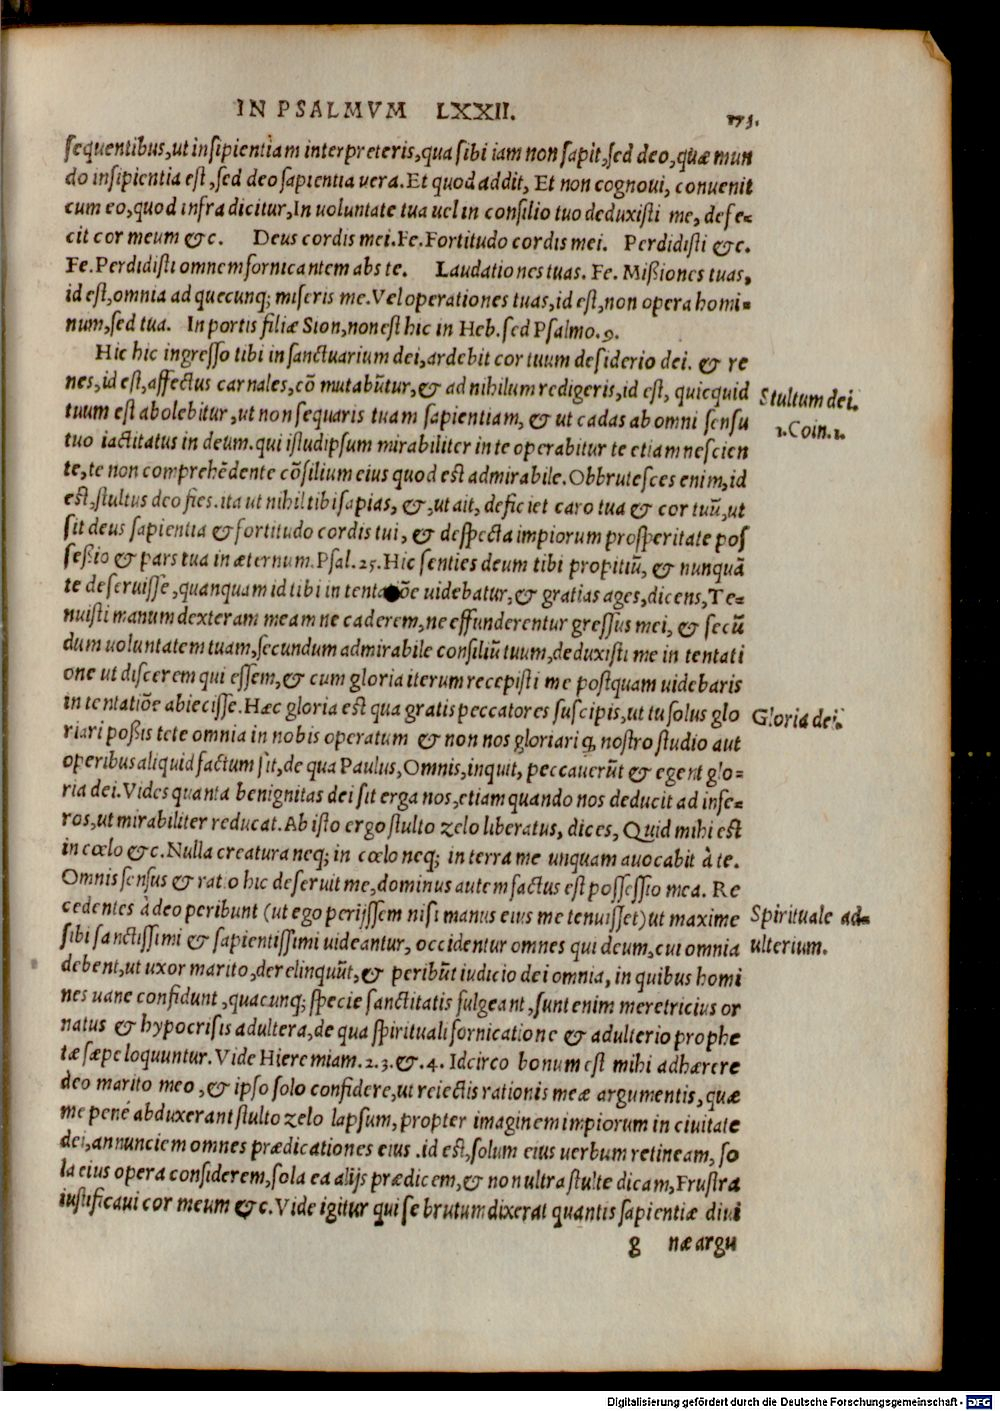 IN PSALMVM LXXII. 173.
sequentibus, ut insipientiam interpreteris, qua sibi iam non sapit, sed deo, quæ mun
do insipientia est, sed deo sapientia vera. Et quod addit, Et non cognoui, conuenit
cum eo, quod infra dicitur, In uoluntate tua uel in consilio tuo deduxisti me, defe=
cit cor meum &c. Deus cordis mei. He. Fortitudo cordis mei. Perdidisti &c.
He. Perdidisti omnem fornicantem abs te. Laudationes tuas. He. Mißiones tuas,
id est, omnia ad quecunq; miseris me. Vel operationes tuas, id est, non opera homi=
num, sed tua. In portis filiæ Sion, non est hic in Heb. sed Psalmo. 9.
Hic hic ingresso tibi in sanctuarium dei, ardebit cor tuum desiderio dei. & re
nes, id est, affectus carnales, cō mutabūtur, & ad nihilum redigeris, id est, quicquid
Stultum dei.
tuum est abolebitur, ut non sequaris tuam sapientiam, & ut cadas ab omni sensu
1. Corin. 1.
tuo iactitatus in deum. qui istud ipsum mirabiliter in te operabitur te etiam nescien
te, te non comprehēdente cōsilium eius quod est admirabile. Obbrutesces enim, id
est, stultus deo fies. ita ut nihil tibi sapias, &, ut ait, deficiet caro tua & cor tuū, ut
sit deus sapientia & fortitudo cordis tui, & despecta impiorum prosperitate pos
seßio & pars tua in æternum. Psal. 25. Hic senties deum tibi propitiū, & nunquā
te deseruisse, quanquam id tibi in tentatiōe uidebatur, & gratias ages, dicens, Te=
nuisti manum dexteram meam ne caderem, ne effunderentur gressus mei, & secū
dum uoluntatem tuam, secundum admirabile consiliū tuum, deduxisti me in tentati
one ut discerem qui essem, & cum gloria iterum recepisti me postquam uidebaris
in tentatiōe abiecisse. Hæc gloria est qua gratis peccatores suscipis, ut tu solus glo
Gloria dei.
riari poßis te te omnia in nobis operatum & non nos gloriari ꝙ nostro studio aut
operibus aliquid factum sit, de qua Paulus, Omnis, inquit, peccauerūt & egent glo=
ria dei. Vides quanta benignitas dei sit erga nos, etiam quando nos deducit ad infe=
ros, ut mirabiliter reducat. Ab isto ergo stulto zelo liberatus, dices, Quid mihi est
in cœlo &c. Nulla creatura neq; in cœlo neq; in terra me unquam auocabit à te.
Omnis sensus & ratio hic deseruit me, dominus autem factus est possessio mea. Re
cedentes à deo peribunt (ut ego perijssem nisi manus eius me tenuisset) ut maxime
Spirituale ad=
sibi sanctissimi & sapientissimi uideantur, occidentur omnes qui deum, cui omnia
ulterium.
debent, ut uxor marito, derelinquūt, & peribūt iudicio dei omnia, in quibus homi
nes uane confidunt, quacunq; specie sanctitatis fulgeant, sunt enim meretricius or
natus & hypocrisis adultera, de qua spirituali fornicatione & adulterio prophe
tæ sæpe loquuntur. Vide Hieremiam. 2. 3. &. 4. Idcirco bonum est mihi adhærere
deo marito meo, & ipso solo confidere, ut reiectis rationis meæ argumentis, quæ
me penè abduxerant stulto zelo lapsum, propter imaginem impiorum in ciuitate
dei, annunciem omnes prædicationes eius. id est, solum eius uerbum retineam, so
la eius opera considerem, sola ea alijs prædicem, & non ultra stulte dicam, Frustra
iustificaui cor meum &c. Vide igitur qui se brutum dixerat quantis sapientiæ diui
g næ argu
Digitalisierung gefördert durch die Deutsche Forschungsgemeinschaft - DFG